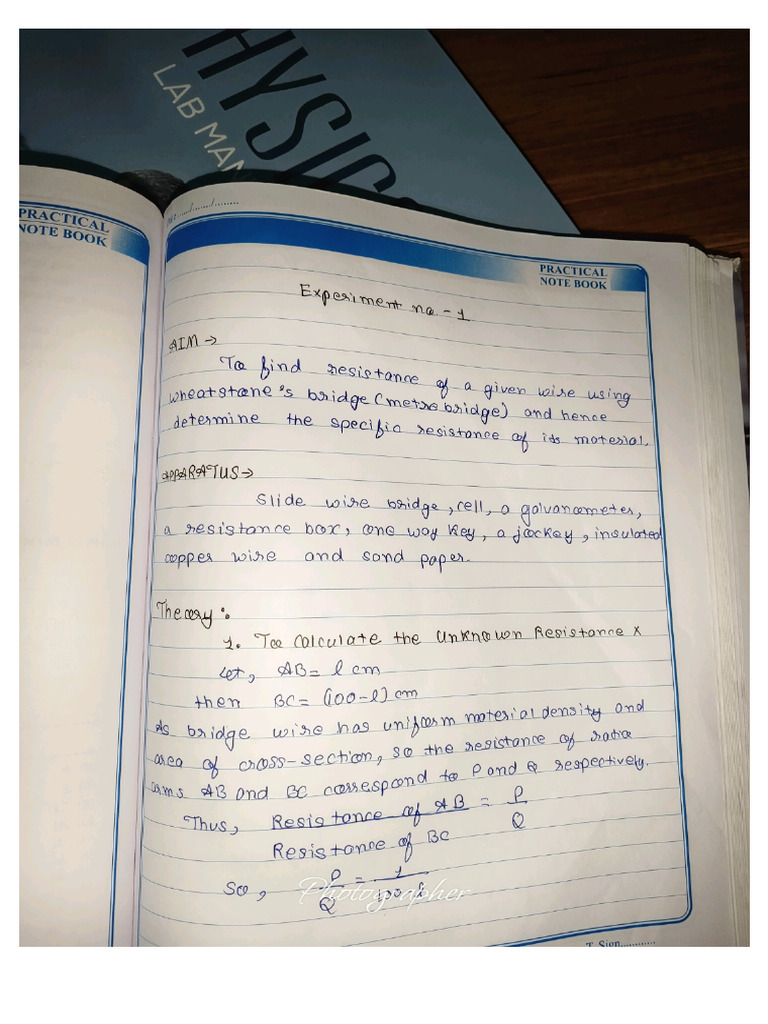 HYSIC
LAB MAN
PRACTICAL
NOTE BOOK
PRACTICAL
NOTE BOOK
Experiment no - 1
AIM →
To find resistance of a given wire using
wheatstone's bridge (metre bridge) and hence
determine the specific resistance of its material.
APPARATUS →
Slide wire bridge, cell, a galvanometer,
a resistance box, one way key, a jockey, insulated
copper wire and sand paper.
Theory :
1. To calculate the unknown Resistance X
Let, AB = l cm
then BC = (100 - l) cm
As bridge wire has uniform material density and
area of cross-section, so the resistance of ratio
arms AB and BC correspond to P and Q respectively.
Thus, Resistance of AB = P
Resistance of BC Q
So, P = 1
Q
Photographer
T. Sign............